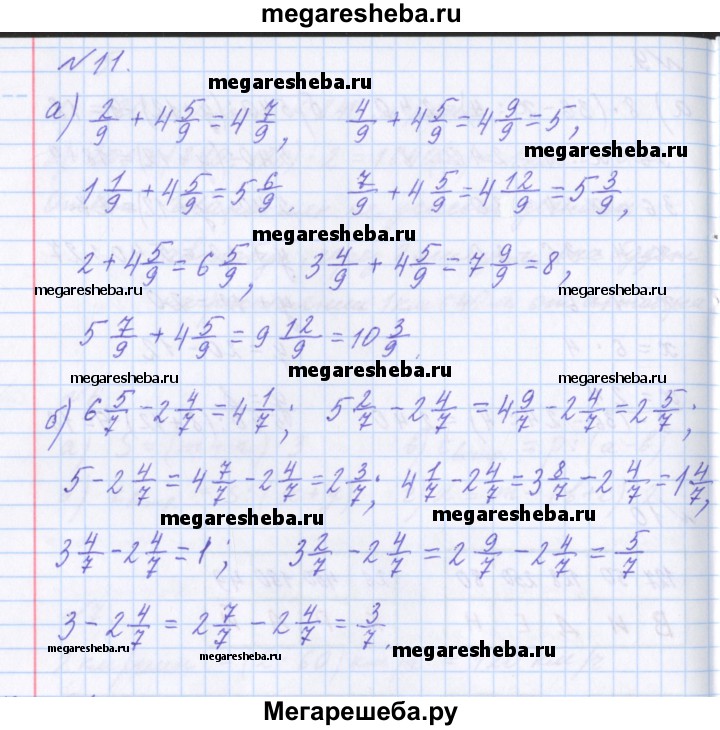 megaresheba.ru
№11.
megaresheba.ru
а) 2/9 + 4 5/9 = 4 7/9, 4/9 + 4 5/9 = 4 9/9 = 5,
megaresheba.ru
1 1/9 + 4 5/9 = 5 6/9, 7/9 + 4 5/9 = 4 12/9 = 5 3/9,
megaresheba.ru
2 + 4 5/9 = 6 5/9, 3 4/9 + 4 5/9 = 7 9/9 = 8,
megaresheba.ru megaresheba.ru
5 7/9 + 4 5/9 = 9 12/9 = 10 3/9.
megaresheba.ru
megaresheba.ru megaresheba.ru
б) 6 5/7 - 2 4/7 = 4 1/7; 5 2/7 - 2 4/7 = 4 9/7 - 2 4/7 = 2 5/7;
5 - 2 4/7 = 4 7/7 - 2 4/7 = 2 3/7; 4 1/7 - 2 4/7 = 3 8/7 - 2 4/7 = 1 4/7;
megaresheba.ru megaresheba.ru
3 4/7 - 2 4/7 = 1; 3 2/7 - 2 4/7 = 2 9/7 - 2 4/7 = 5/7
3 - 2 4/7 = 2 7/7 - 2 4/7 = 3/7.
megaresheba.ru megaresheba.ru megaresheba.ru
Мегарешеба.ру